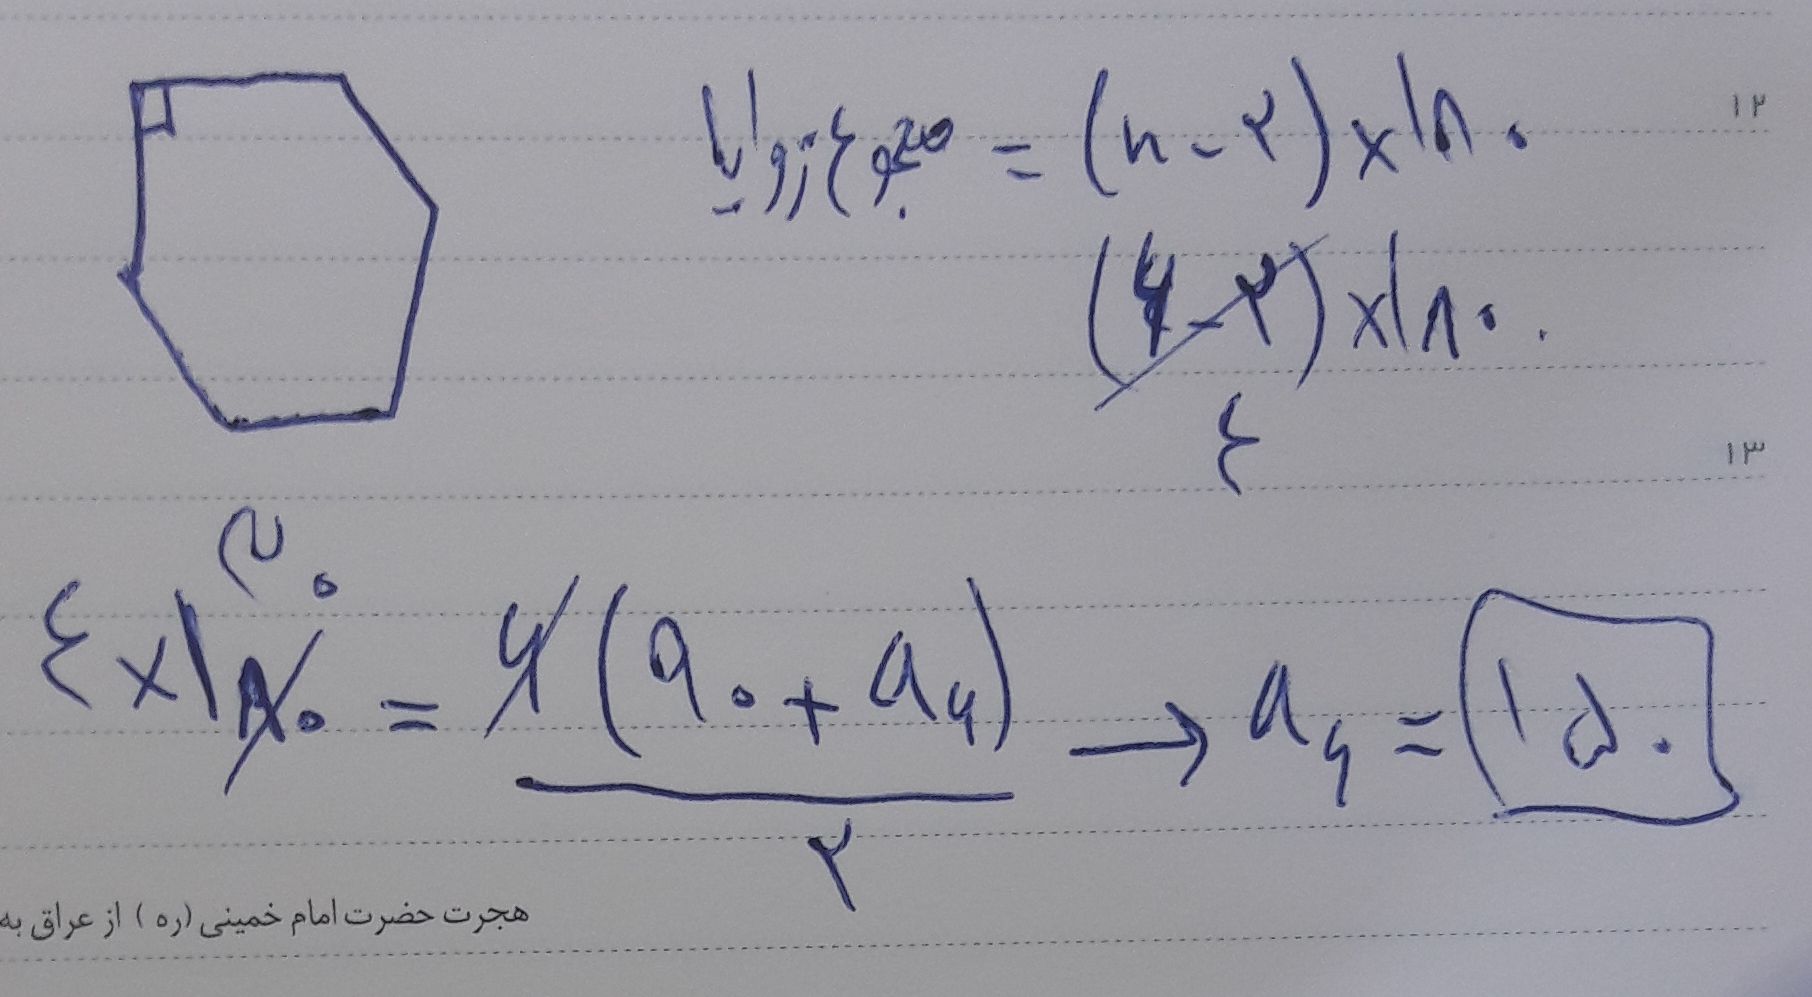 ۱۲
مجموع زوایا = (n - ۲) × ۱۸۰
(۶ - ۲) × ۱۸۰
۴
۱۳
۳۰
۴ × ۱۸۰ = ۶(۹۰ + a۶) → a۶ = ۱۵۰
۲
هجرت حضرت امام خمینی (ره) از عراق به